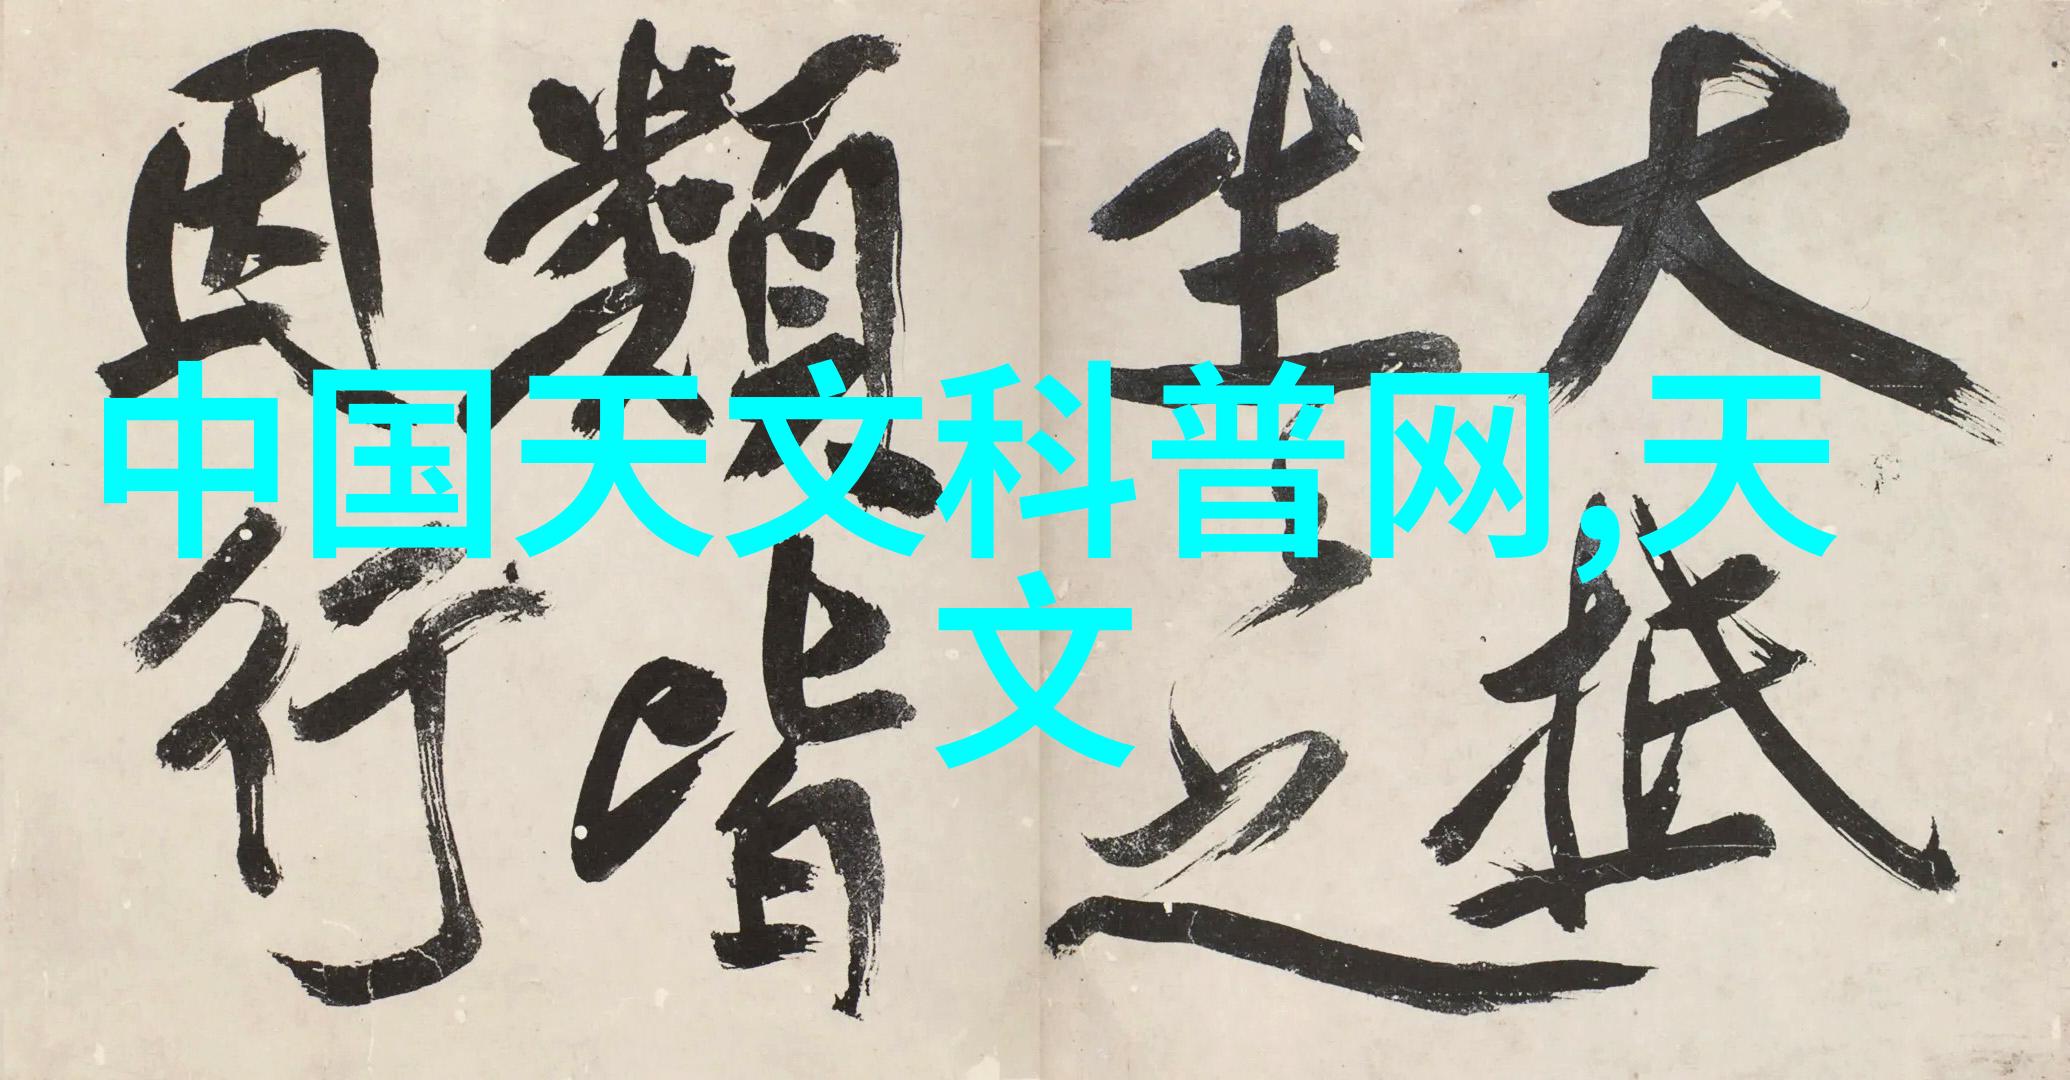 中国天文科普网,天
文
大抵
生之
類皆
因行